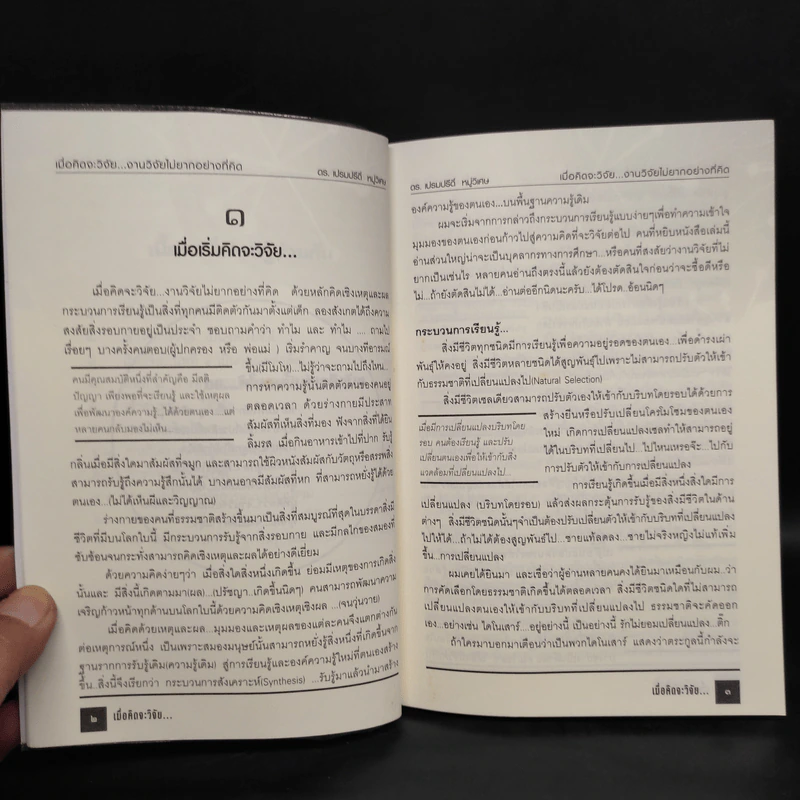 เมื่อคิดจะวิจัย...งานวิจัยไม่ยากอย่างที่คิด
ดร. เปรมปรีดี หมู่วิเศษ
๑
เมื่อเริ่มคิดจะวิจัย...
เมื่อคิดจะวิจัย...งานวิจัยไม่ยากอย่างที่คิด ด้วยหลักคิดเชิงเหตุและผล
กระบวนการเรียนรู้เป็นสิ่งที่ทุกคนมีติดตัวกันมาตั้งแต่เด็ก ลองสังเกตได้ถึงความ
สงสัยสิ่งรอบกายอยู่เป็นประจำ ชอบถามคำว่า ทำไม และ ทำไม .... ถามไป
เรื่อยๆ บางครั้งคนตอบ(ผู้ปกครอง หรือ พ่อแม่ ) เริ่มรำคาญ จนบางทีอารมณ์
ขึ้น(มีโมโห)...ไม่รู้จะถามไปถึงไหน...
การหาความรู้นั้นติดตัวตนของคนอยู่
ตลอดเวลา ด้วยร่างกายมีประสาท
สัมผัสที่เห็นสิ่งที่มอง ฟังจากสิ่งที่ได้ยิน
ลิ้มรส เมื่อกินอาหารเข้าไปที่ปาก รับรู้
คนมีคุณสมบัติหนึ่งที่สำคัญคือ มีสติ
ปัญญา เพียงพอที่จะเรียนรู้ และใช้เหตุผล
เพื่อพัฒนาองค์ความรู้...ได้ด้วยตนเอง แต่
หลายคนกลับมองไม่เห็น...
กลิ่นเมื่อมีสิ่งใดมาสัมผัสที่จมูก และสามารถใช้ผิวหนังสัมผัสกับวัตถุอื่นหรือสิ่งใด
สามารถรับรู้ถึงความรู้สึกนั้นได้ บางคนอาจมีสัมผัสที่หก ที่สามารถหยั่งรู้ได้ด้วย
ตนเอง...(ไม่ได้เห็นผีและวิญญาณ)
ร่างกายของคนที่ธรรมชาติสร้างขึ้นมาเป็นสิ่งที่สมบูรณ์ที่สุดในบรรดาสิ่งมี
ชีวิตที่มีบนโลกใบนี้ มีกระบวนการรับรู้จากสิ่งรอบกาย และมีกลไกของสมองที่
ซับซ้อนจนกระทั่งสามารถคิดเชิงเหตุและผลได้อย่างดีเยี่ยม
ด้วยความคิดง่ายๆว่า เมื่อสิ่งใดสิ่งหนึ่งเกิดขึ้น ย่อมมีเหตุของการเกิดสิ่ง
นั้นและ มีสิ่งนี้เกิดตามมา(ผล)...ปรัชญา...เกิดขึ้นนิดๆ) คนสามารถพัฒนาความ
เจริญก้าวหน้าทุกด้านบนโลกใบนี้ด้วยความคิดเชิงเหตุเชิงผล ...(จนวุ่นวาย)
เมื่อคิดด้วยเหตุและผล...มุมมองและเหตุผลของแต่ละคนจึงแตกต่างกัน
ต่อเหตุการณ์หนึ่ง เป็นเพราะสมองมนุษย์นั้นสามารถหยั่งรู้สิ่งที่เกิดขึ้นจาก
ฐานรากการรับรู้เดิม(ความรู้เดิม) สู่การเรียนรู้และองค์ความรู้ใหม่ที่ตนเองสร้าง
ขึ้น..สิ่งนี้จึงเรียกว่า กระบวนการสังเคราะห์(Synthesis) ...รับรู้มาแล้วนำมาสร้าง
๒ เมื่อคิดจะวิจัย...
ดร. เปรมปรีดี หมู่วิเศษ
เมื่อคิดจะวิจัย...งานวิจัยไม่ยากอย่างที่คิด
องค์ความรู้ของตนเอง...บนพื้นฐานความรู้เดิม
ผมจะเริ่มจากการกล่าวถึงกระบวนการเรียนรู้แบบง่ายๆเพื่อทำความเข้าใจ
มุมมองของตนเองก่อนก้าวไปสู่ความคิดที่จะวิจัยต่อไป คนที่หยิบหนังสือเล่มนี้
อ่านส่วนใหญ่น่าจะเป็นบุคลากรทางการศึกษา...หรือคนที่สงสัยว่างานวิจัยที่ไม่
ยากเป็นเช่นไร หลายคนอ่านถึงตรงนี้แล้วยังต้องตัดสินใจก่อนว่าจะซื้อดีหรือ
ไม่...ถ้ายังตัดสินไม่ได้...อ่านต่ออีกนิดนะครับ...ได้โปรด..อ้อนนิดๆ
กระบวนการเรียนรู้...
สิ่งมีชีวิตทุกชนิดมีการเรียนรู้เพื่อความอยู่รอดของตนเอง...เพื่อดำรงเผ่า
พันธุ์ให้คงอยู่ สิ่งมีชีวิตหลายชนิดได้สูญพันธุ์ไปเพราะไม่สามารถปรับตัวให้เข้า
กับธรรมชาติที่เปลี่ยนแปลงไป(Natural Selection)
สิ่งมีชีวิตเซลเดียวสามารถปรับตัวเองให้เข้ากับบริบทโดยรอบได้ด้วยการ
สร้างยีนหรือปรับเปลี่ยนโครโมโซมของตนเอง
ใหม่ เกิดการเปลี่ยนแปลงเซลทำให้สามารถอยู่
ได้ในบริบทที่เปลี่ยนไป ...ไปไหนเหรอจ๊ะ... ไปกับ
การปรับตัวให้เข้ากับการเปลี่ยนแปลง
เมื่อมีการเปลี่ยนแปลงบริบทโดย
รอบ คนต้องเรียนรู้ และปรับ
เปลี่ยนตนเองเพื่อให้เข้ากับสิ่ง
แวดล้อมที่เปลี่ยนแปลงไป...
การเรียนรู้เกิดขึ้นเมื่อมีสิ่งหนึ่งสิ่งใดมีการ
เปลี่ยนแปลง (บริบทโดยรอบ) แล้วส่งผลกระตุ้นการรับรู้ของสิ่งมีชีวิตในด้าน
ต่างๆ สิ่งมีชีวิตชนิดนั้นๆจำเป็นต้องปรับเปลี่ยนตัวให้เข้ากับบริบทที่เปลี่ยนแปลง
ไปให้ได้...ถ้าไม่ได้ต้องสูญพันธุ์ไป...ชายแท้ลดลง...ชายไม่จริงหญิงไม่แท้เพิ่ม
ขึ้น...การเปลี่ยนแปลง
ผมเคยได้ยินมา และเชื่อว่าผู้อ่านหลายคนคงได้ยินมาเหมือนกับผม..ว่า
การคัดเลือกโดยธรรมชาติเกิดขึ้นได้ตลอดเวลา สิ่งมีชีวิตชนิดใดที่ไม่สามารถ
เปลี่ยนแปลงตนเองให้เข้ากับบริบทที่เปลี่ยนแปลงไป ธรรมชาติจะคัดออก
เอง...อย่างเช่น ไดโนเสาร์...อยู่อย่างนี้ เป็นอย่างนี้ รักไม่ยอมเปลี่ยนแปลง...ติ๊ก
ถ้าใครมาบอกมาเตือนว่าเป็นพวกไดโนเสาร์ แสดงว่าตระกูลนี้กำลังจะ
เมื่อคิดจะวิจัย... ๓